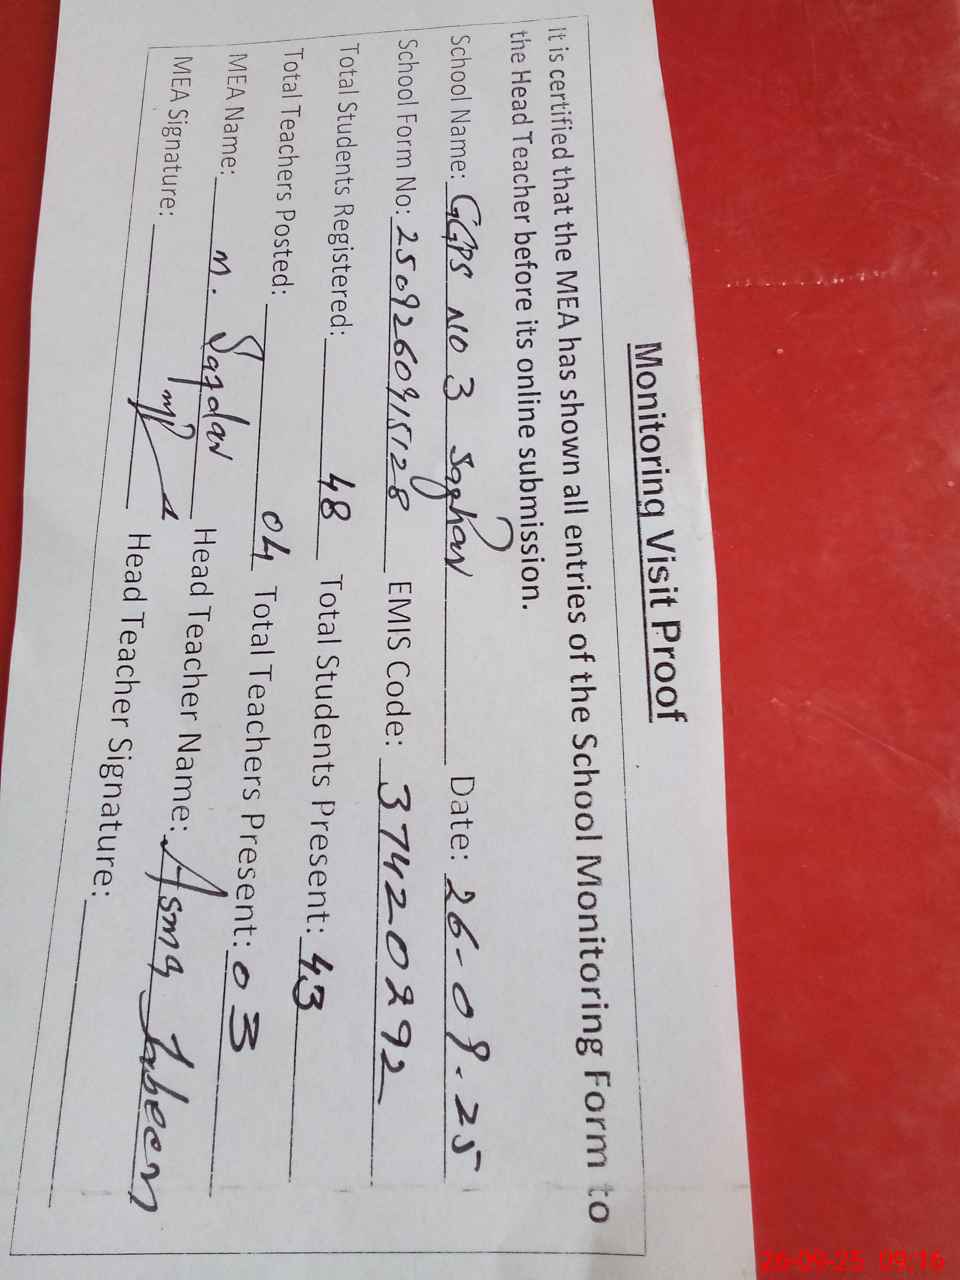 Monitoring Visit Proof
It is certified that the MEA has shown all entries of the School Monitoring Form to
the Head Teacher before its online submission.
School Name: GGPS NO 3 Saghar Date: 26-09-25
School Form No: 25092609415128 EMIS Code: 37420292
Total Students Registered: 48 Total Students Present: 43
Total Teachers Posted: 04 Total Teachers Present: 03
MEA Name: M. Safdar Head Teacher Name: Asma Jabeen
MEA Signature: Head Teacher Signature:
26-09-25 09:16